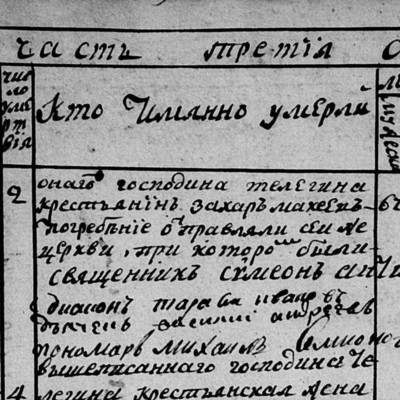 часть третія
число умертвія
кто имянно умерли
2
онаго господина телегина
крестьянинъ захаръ макеевъ
погребеніе отправляли сей же
церкви, при которомъ были
священникъ симеонъ
диаконъ тарасъ ивановъ
дьячекъ василий андреевъ
пономарь михаилъ
вышеписаннаго господина те
4
легина крестьянская жена